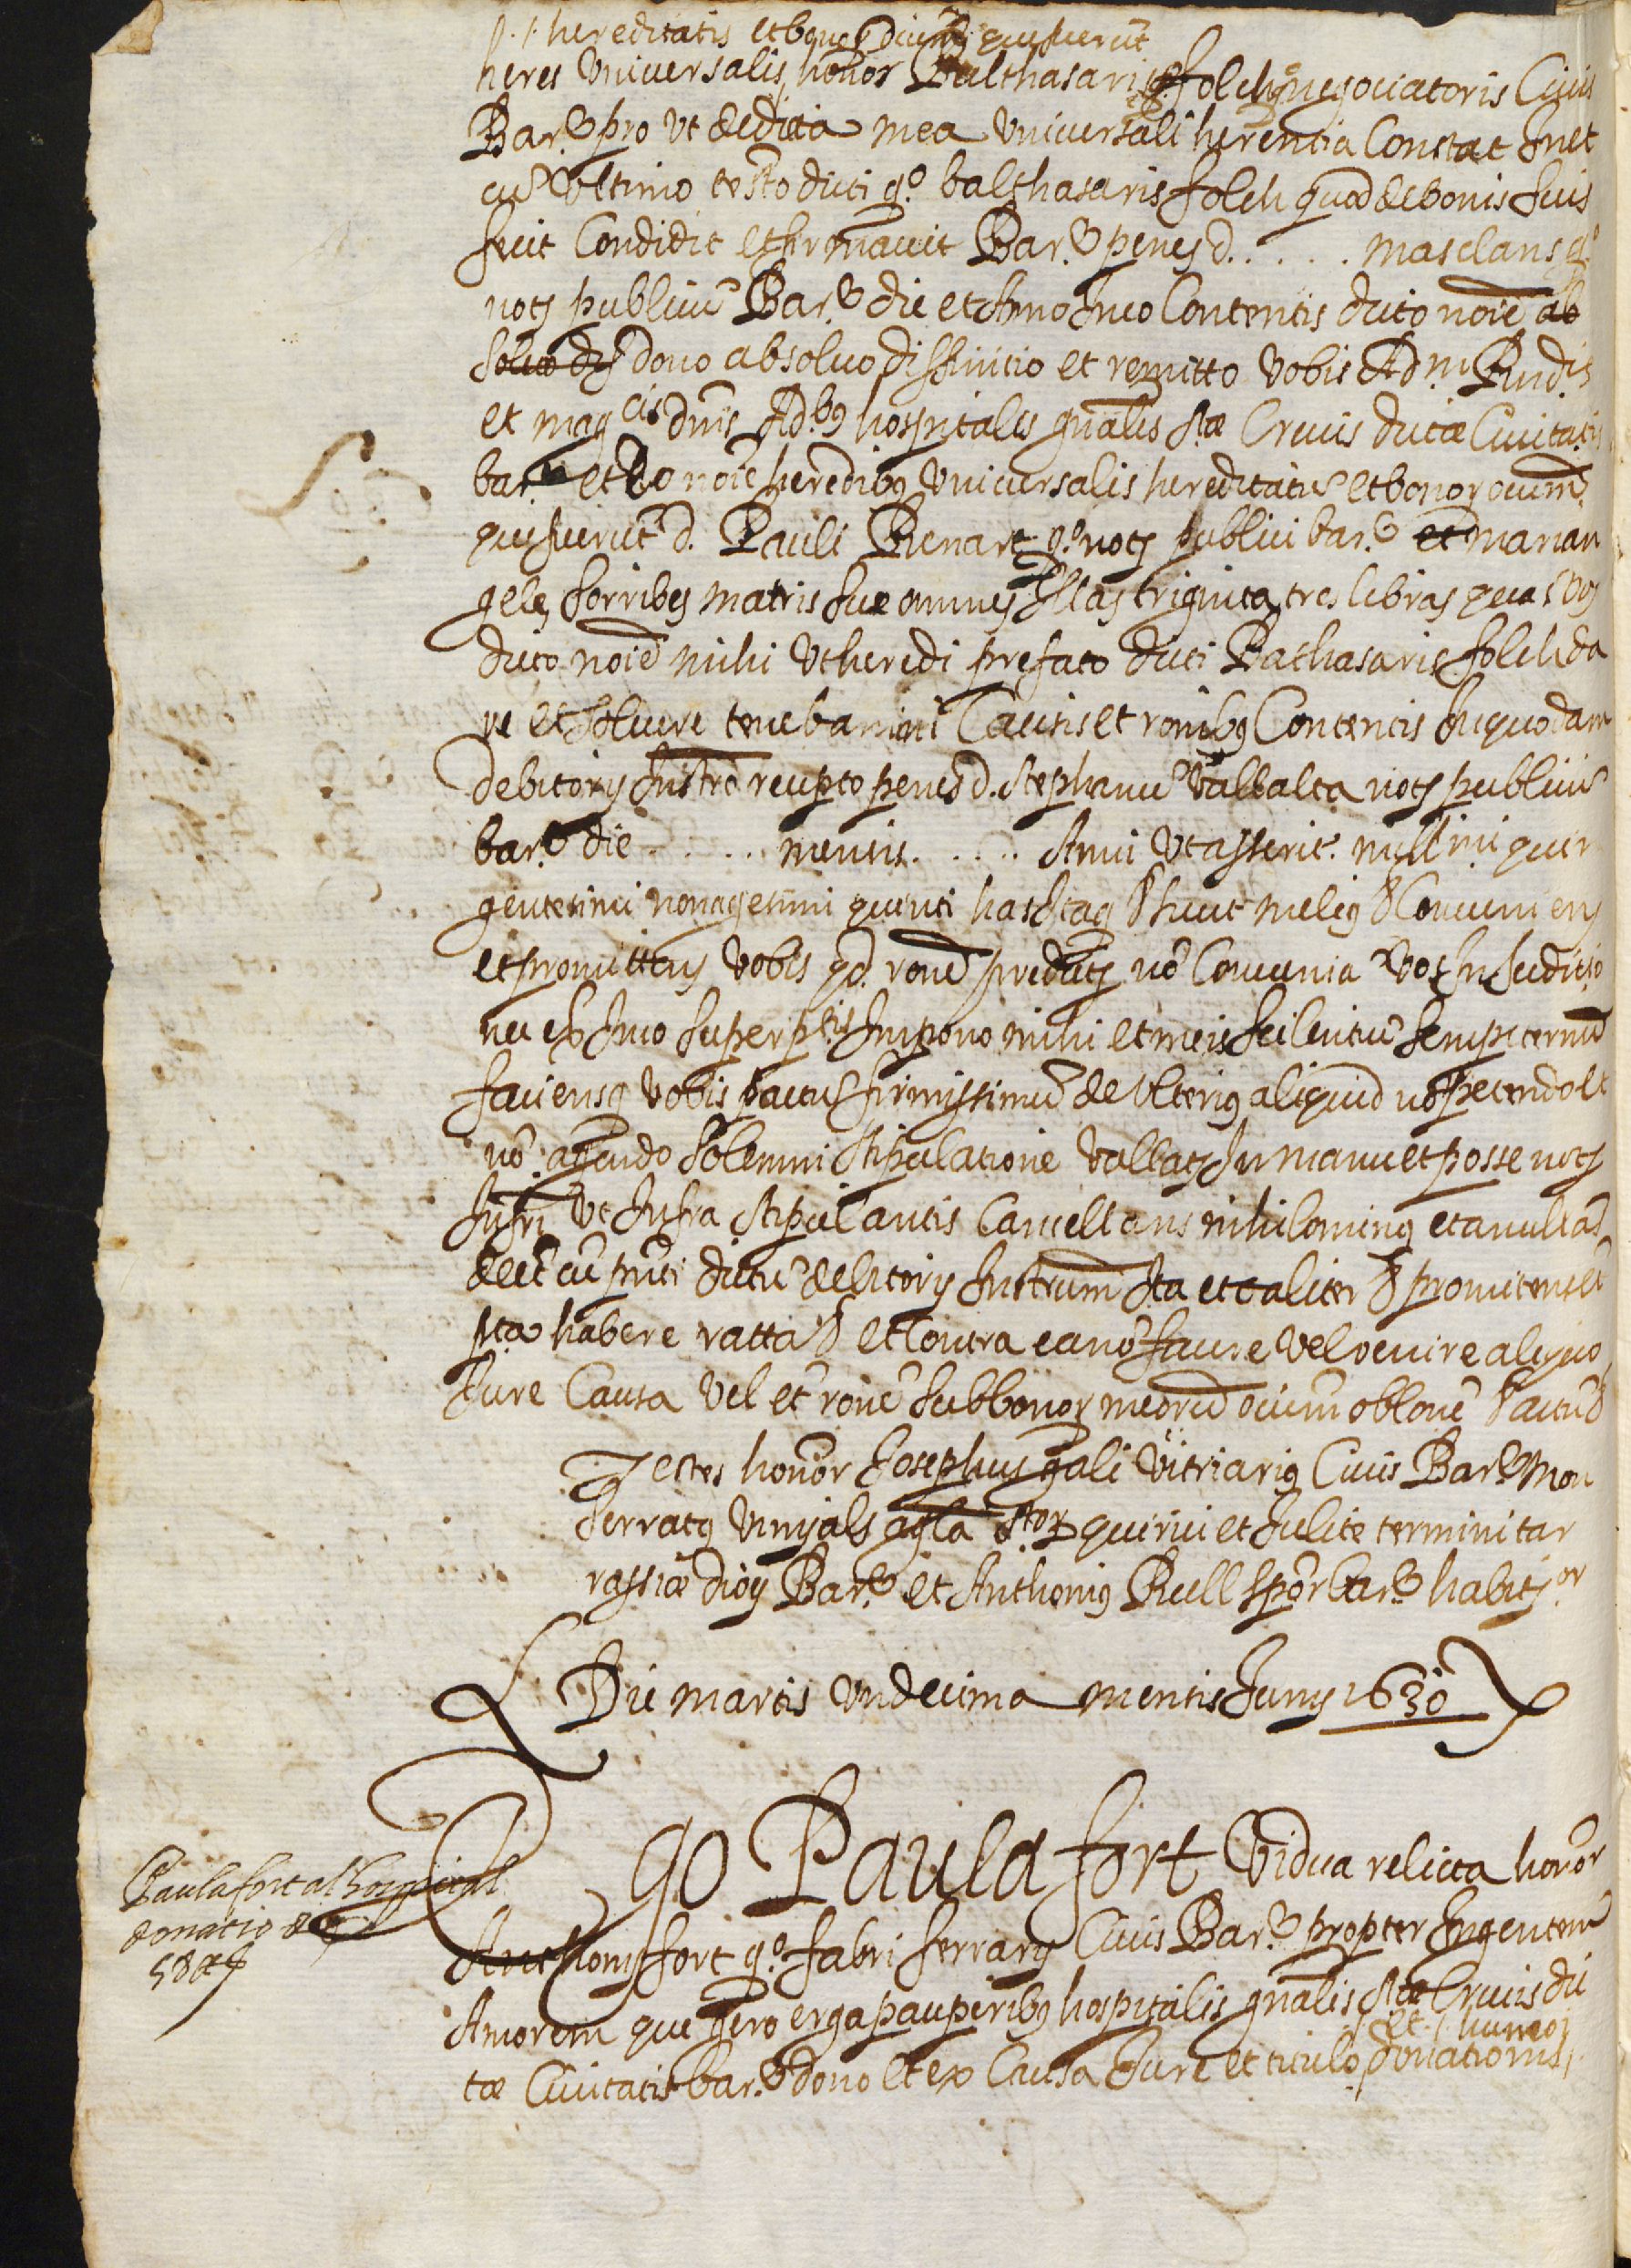 hereditatis et bonor que fuerut
heres Universalis honor Balthasaris folch q.o negociatoris Civis
Bar.e pro ut de dicta mea Universali herentia Constat Inst
cu Ultimo testo dicti q.o balthasaris folch quod de bonis suis
fecit Condidit et firmavit Bar.e penes d. . . . . masclans q.o
noty publicu Bar.e die et Anno In eo Contentis dicto noie ab
solvo dono absolvo diffinitio et remitto vobis Ad.m Rndis
et mag.cis dnis Ad.bus hospitalis gnalis Stæ Crucis dictæ Civitatis
bar.e et eo noie heredibus Universalis hereditatis et bonor ocium
que fuerut d. Pauli Renart q.o noty publici bar.e et marian
gele sorribes matris sue omnes Illas triginta tres libras quas vos
dicto noie mihi Ut heredi prefato dicti Bathasaris folch da
re et solvere tenebamini Causis et ronibus Contentis In quodam
debitory Instro recepto penes d. Stephanu Vallalta noty publicu
bar.e die . . . . mensis. . . . . Anni Ut asserit. millmi quin
gentesimi nonagesimi quinti has Itaq melius Conveniens
et promittens vobis qd. rone predicts no Convenia Vos In Judicio
nec ex Imo super p.tis Impono mihi et meis scilentiu sempiternu
faciensq vobis pactu firmissimu de Ulterius aliquid no petendo et
no agendo Solemni stipulatione vallaty In manu et posse noty
Infri Ut Infra stipulantis Cancellans nihilominus et anullas
de et cu pnti dictu debitory Instrum Ita et taliter promitens et
pta habere ratta et Contra ea no facere vel venire aliquo
Jure Causa vel et rone sub bonor meoru ocium oblone actu
Testes honor Josephus gali Vitriarius Civis Bar.e Mon
serratus Vinyals agla S.tor quirici et Julite termini tar
rassiæ diocs Bar.e et Anthonius Rull spor bar.e habit.or
Die martis Undecima mensis Juny 1630
Ego Paula fort Vidua relicta honor
Paula fort al hospital
donatio de
58 ₶
Anthony fort q.o fabri ferrary Civis Bar.e propter Ingentem
Amorem que gero erga pauperibus hospitalis gnalis Stæ Crucis dic
tæ Civitatis bar.e dono et ex Causa Jure et titulo donationis